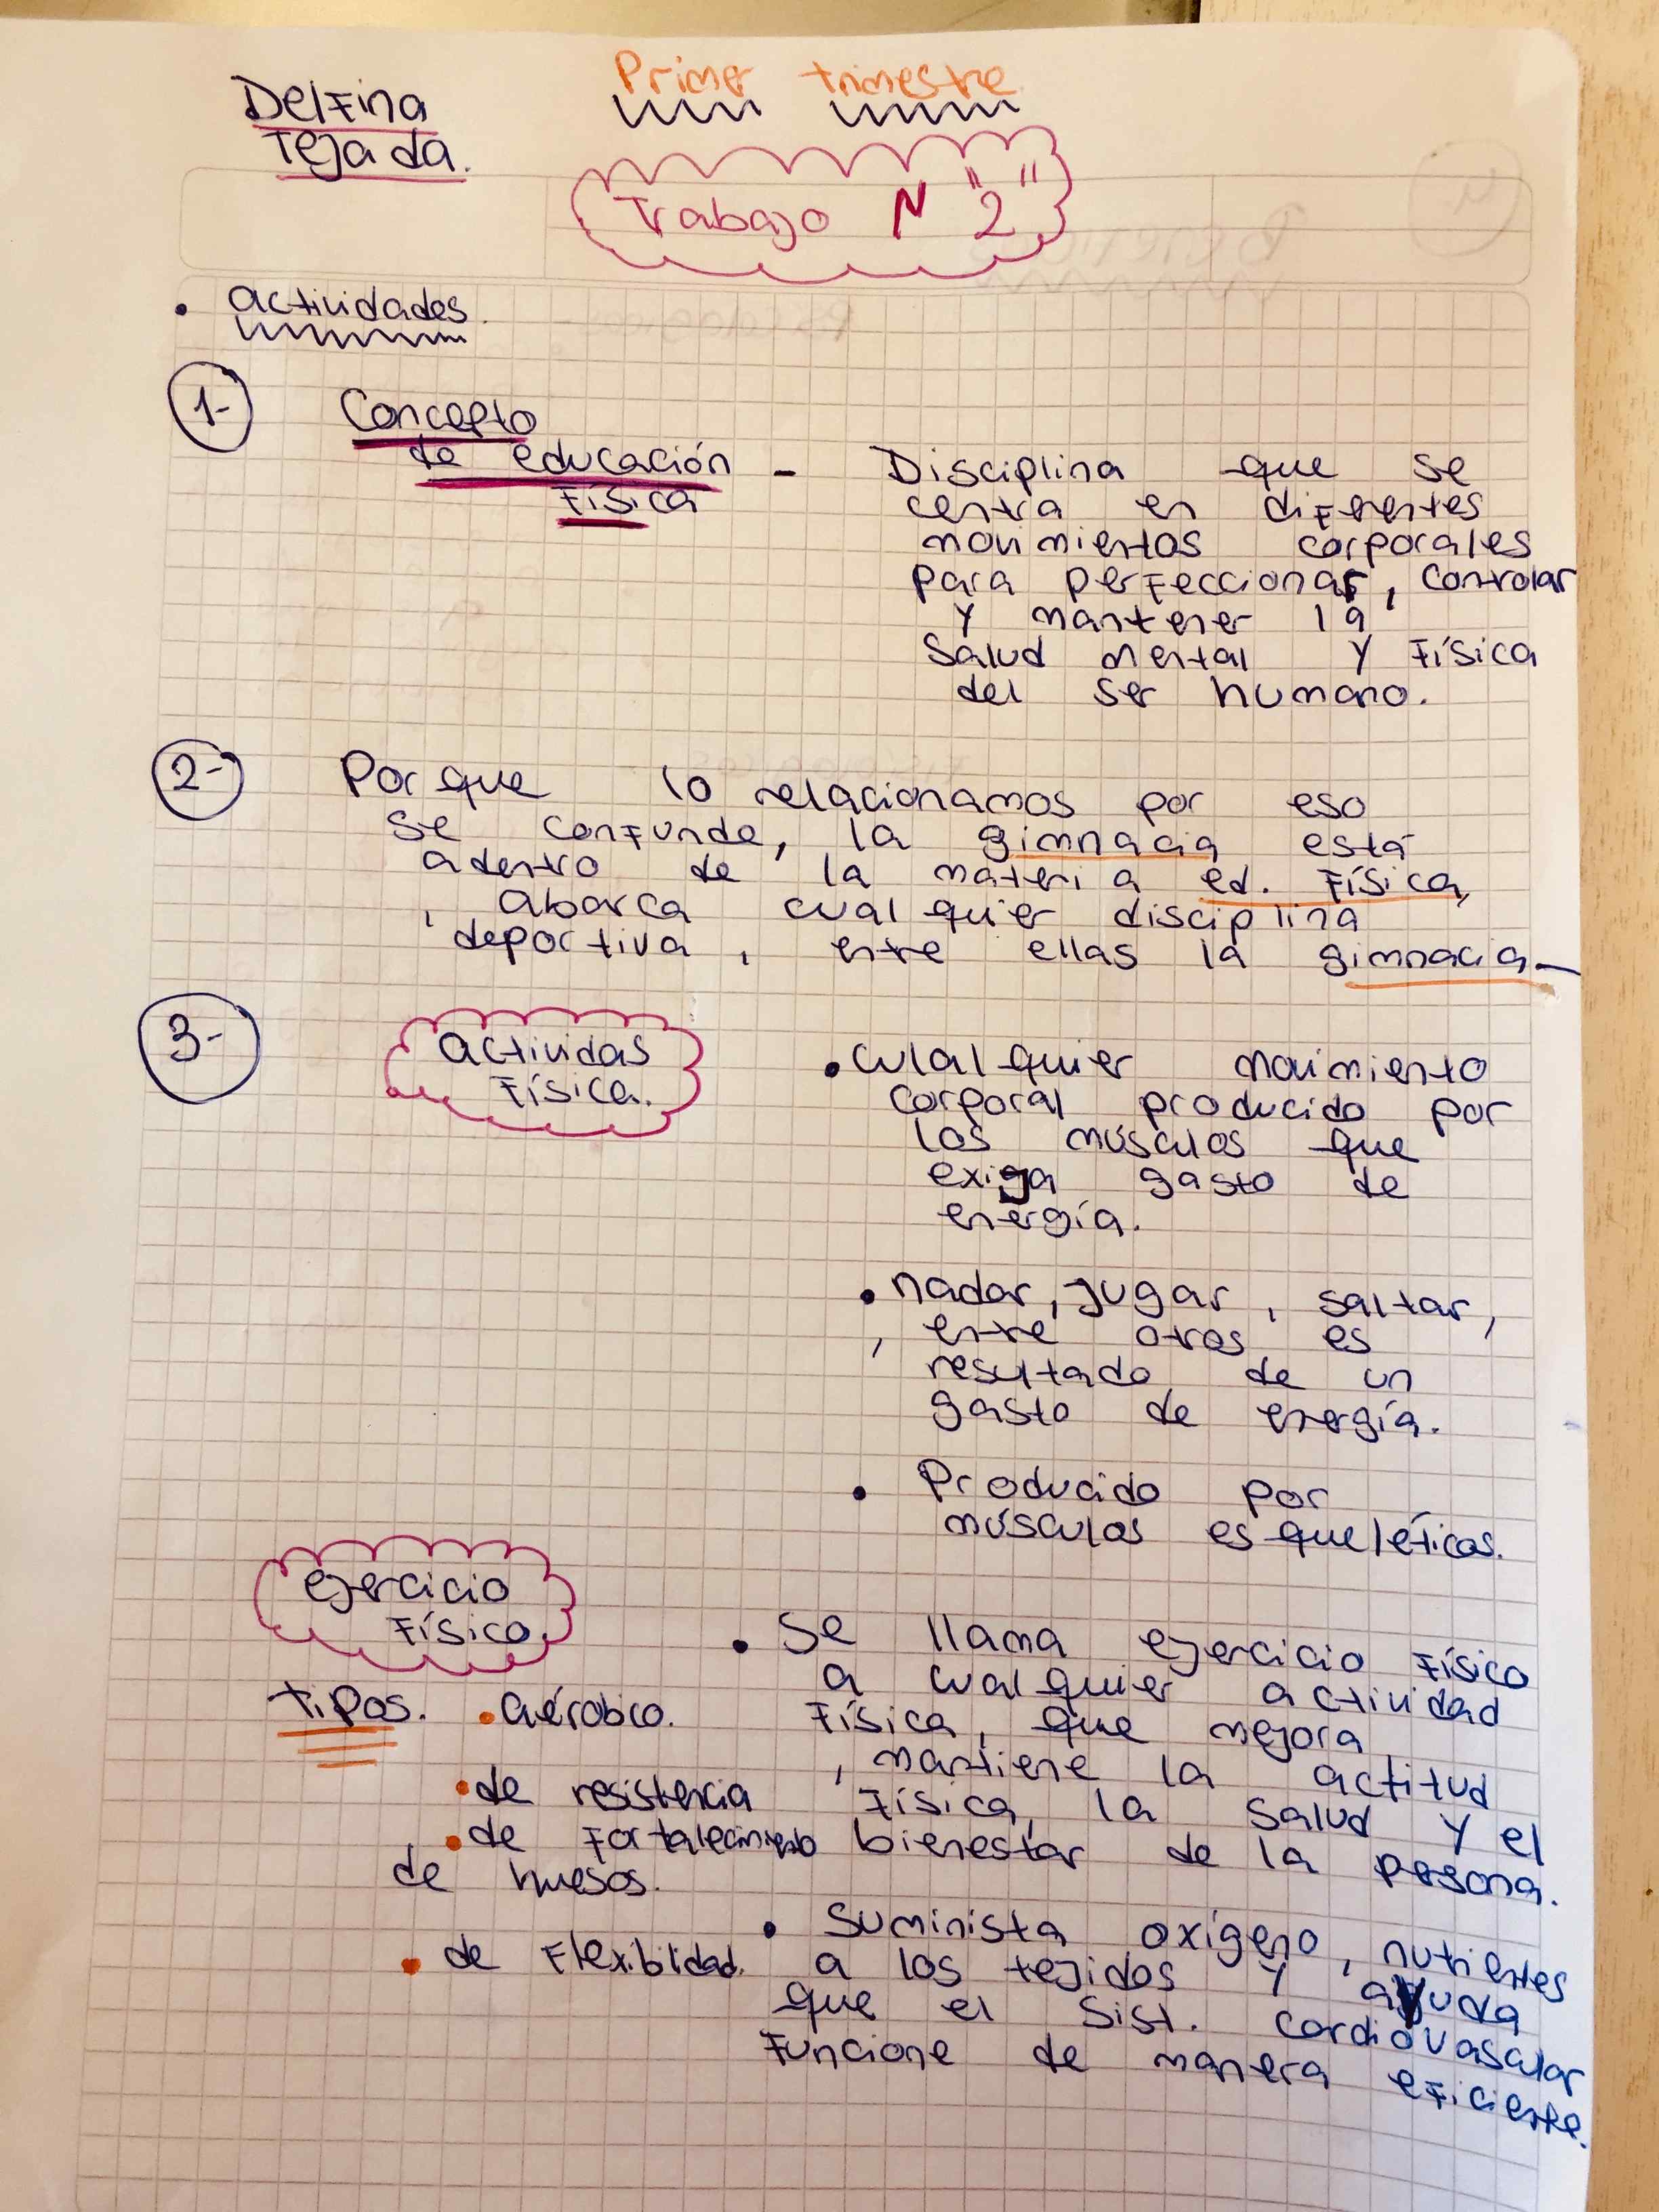 Delfina
Tejada.
Primer trimestre
Trabajo N "2"
• actividades.
1- Concepto
de educación
Física
- Disciplina que se
centra en diferentes
movimientos corporales
para perfeccionar, controlar
y mantener la
salud mental y física
del ser humano.
2- Por que lo relacionamos por eso
se confunde, la gimnacia está
adentro de la materia ed. Física,
, abarca cualquier disciplina
deportiva, entre ellas la gimnacia
3- actividas
Física.
• cualquier movimiento
corporal producido por
los músculos que
exiga gasto de
energía.
• nadar, jugar, saltar,
, entre otros es
resultado de un
gasto de energía.
• Producido por
músculos esqueléticos.
ejercicio
Físico.
• Se llama ejercicio físico
a cualquier actividad
física, que mejora
, mantiene la actitud
física, la salud y el
bienestar de la persona.
• Suminista oxígeno, nutrientes
a los tejidos y ayuda
que el Sist. cardiovascular
funcione de manera eficiente.
tipos. • aérobico.
• de resistencia
• de fortalecimiento
de huesos.
• de Flexiblidad.